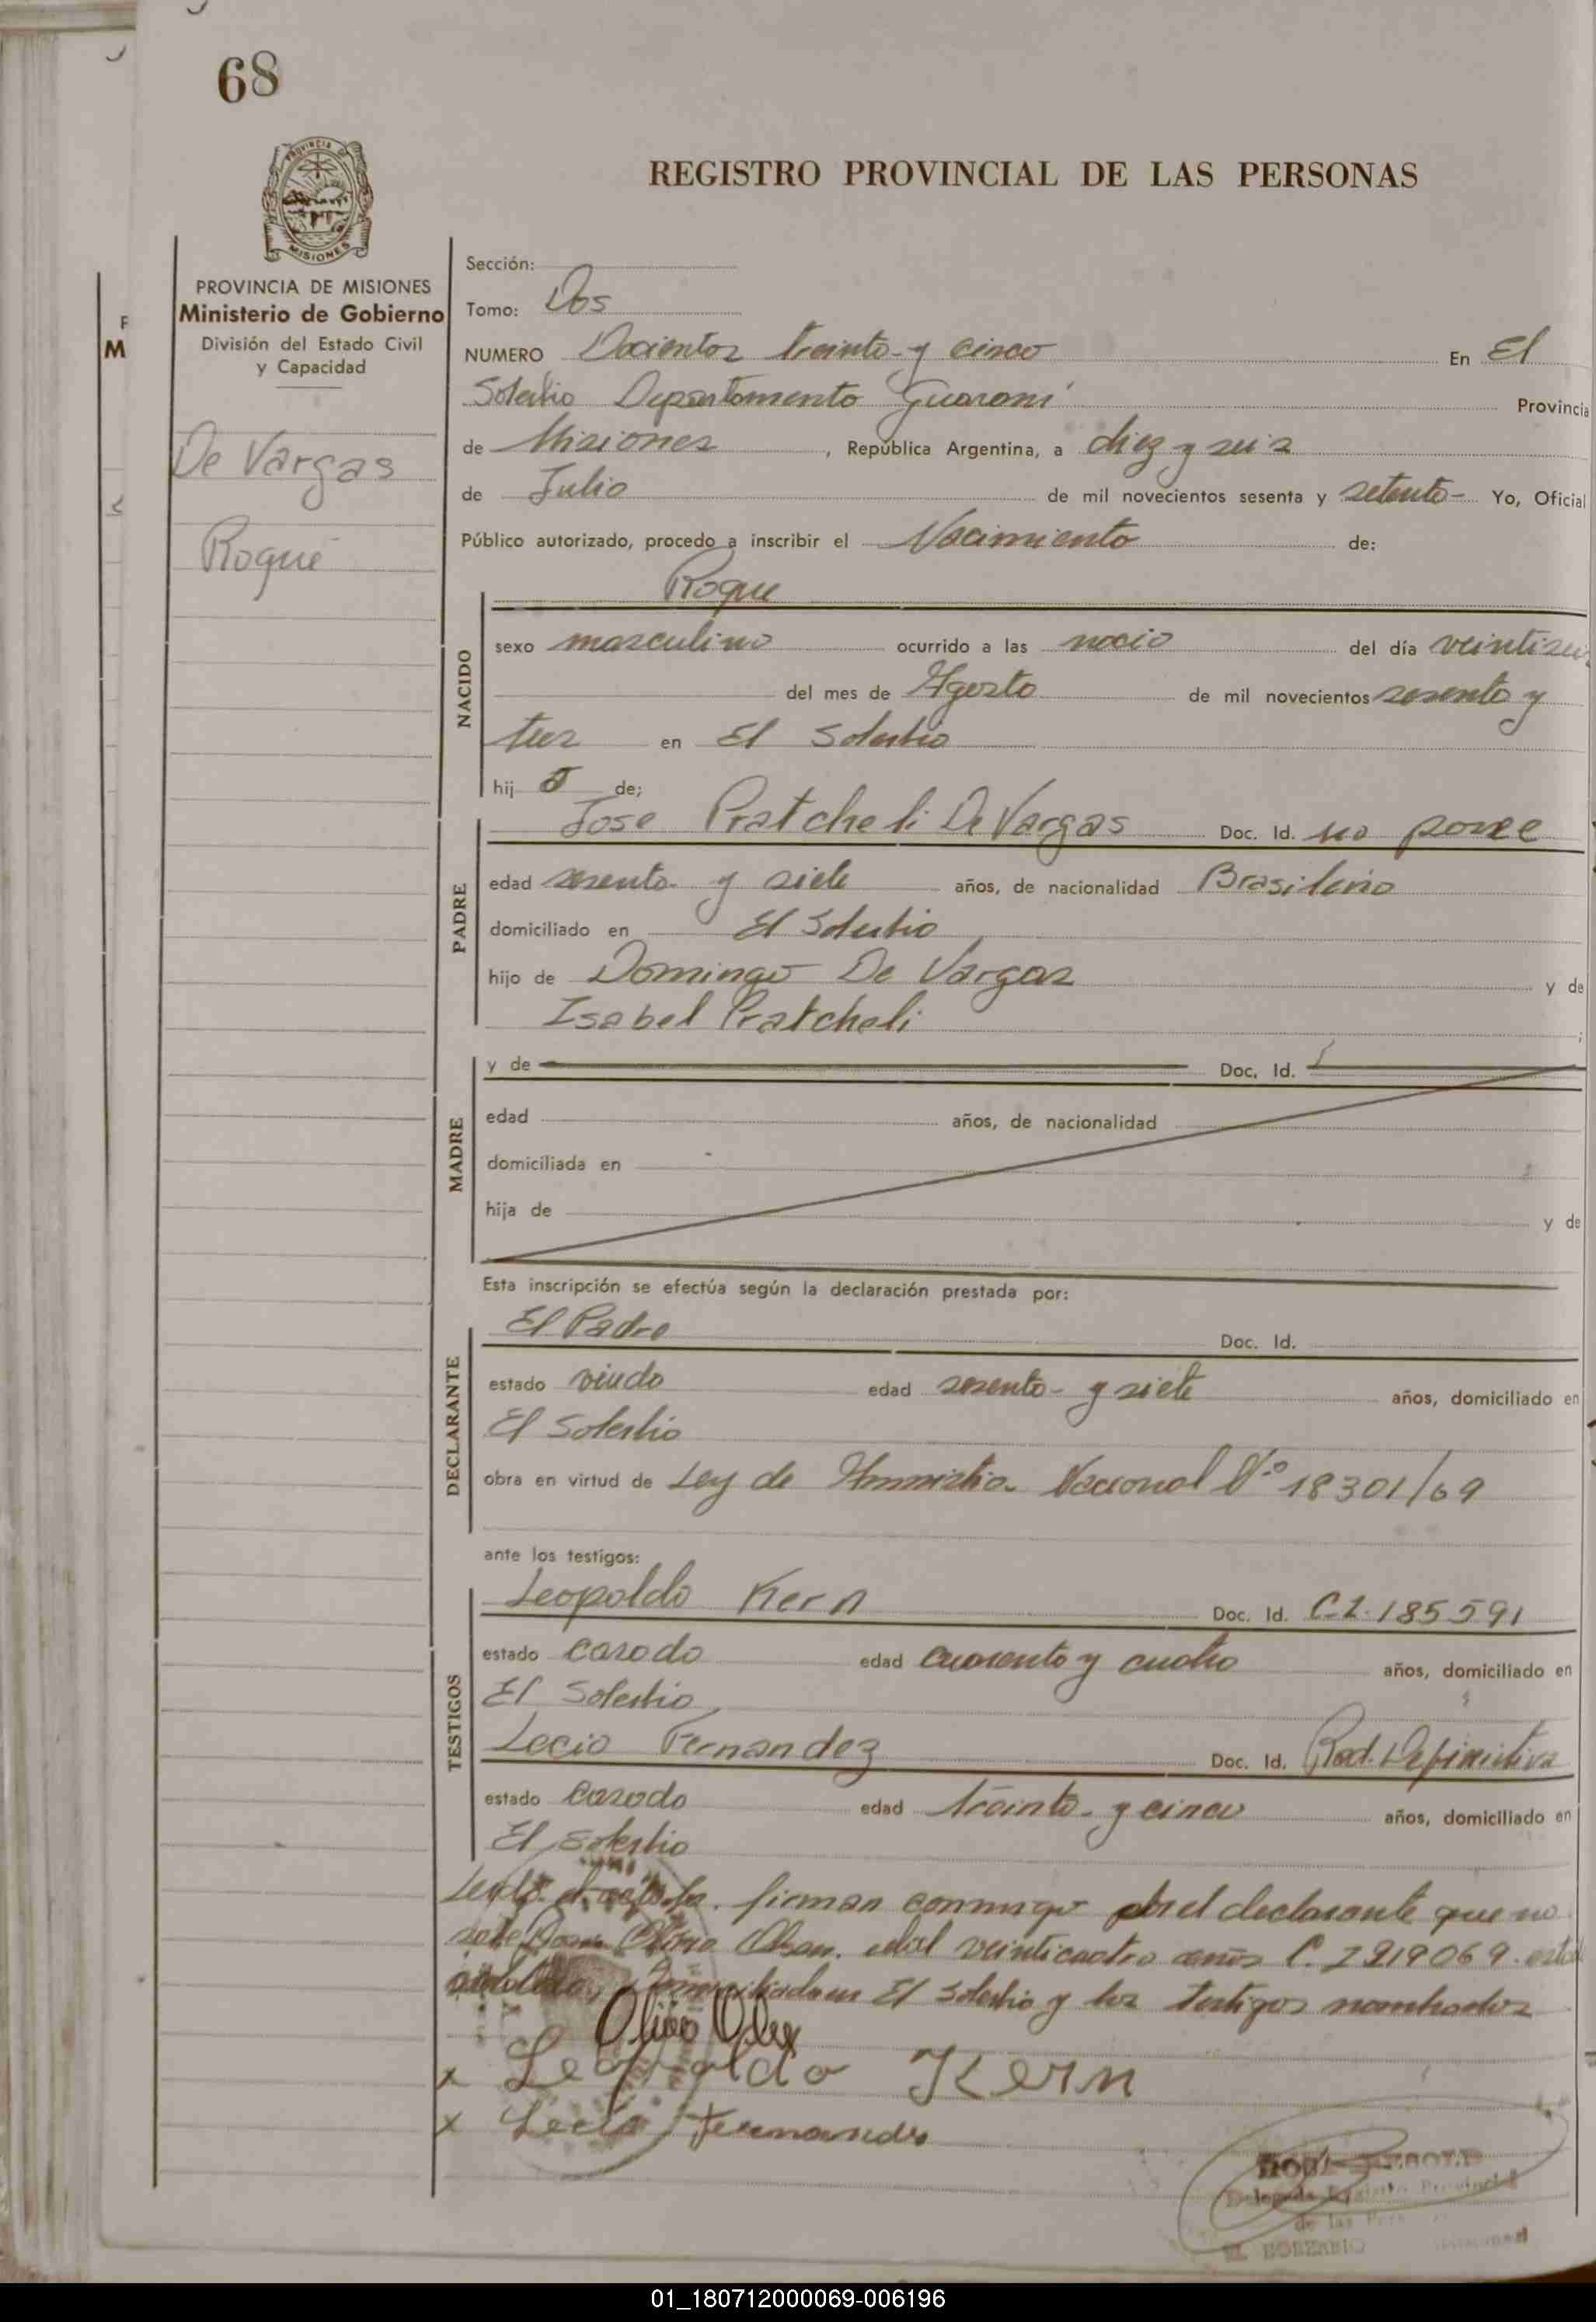 68
PROVINCIA
MISIONES
REGISTRO PROVINCIAL DE LAS PERSONAS
PROVINCIA DE MISIONES
Ministerio de Gobierno
División del Estado Civil
y Capacidad
De Vargas
Roque
Sección:
Tomo: Dos
NUMERO Docientos treinta y cinco En El
Soberbio Departamento Guaraní Provincia
de Misiones, República Argentina, a diez y seis
de Julio de mil novecientos sesenta y setenta Yo, Oficial
Público autorizado, procedo a inscribir el Nacimiento de:
NACIDO
Roque
sexo masculino ocurrido a las del día veintiseis
del mes de Agosto de mil novecientos sesenta y
tres en El Soberbio
hijo de;
PADRE
Jose Pratcheli De Vargas Doc. Id. no posee
edad sesenta y siete años, de nacionalidad Brasileño
domiciliado en El Soberbio
hijo de Domingo De Vargas y de
Isabel Pratcheli
MADRE
y de Doc. Id.
edad años, de nacionalidad
domiciliada en
hija de y de
Esta inscripción se efectúa según la declaración prestada por:
DECLARANTE
El Padre Doc. Id.
estado viudo edad sesenta y siete años, domiciliado en
El Soberbio
obra en virtud de Ley de Amnistia Nacional Nº 18301/69
ante los testigos:
TESTIGOS
Leopoldo Kern Doc. Id. C.I. 185591
estado casado edad cuarenta y cuatro años, domiciliado en
El Soberbio
Lecio Fernandez Doc. Id. Rad. Definitiva
estado casado edad treinta y cinco años, domiciliado en
El Soberbio
Leida el acta la firman conmigo por el declarante que no
sabe edad veinticuatro años C. I 219069
domiciliado en El Soberbio y los testigos nombrados
Leopoldo Kern
Fernandes
Delegada Registro Provincial
de las
EL SOBERBIO
01_180712000069-006196